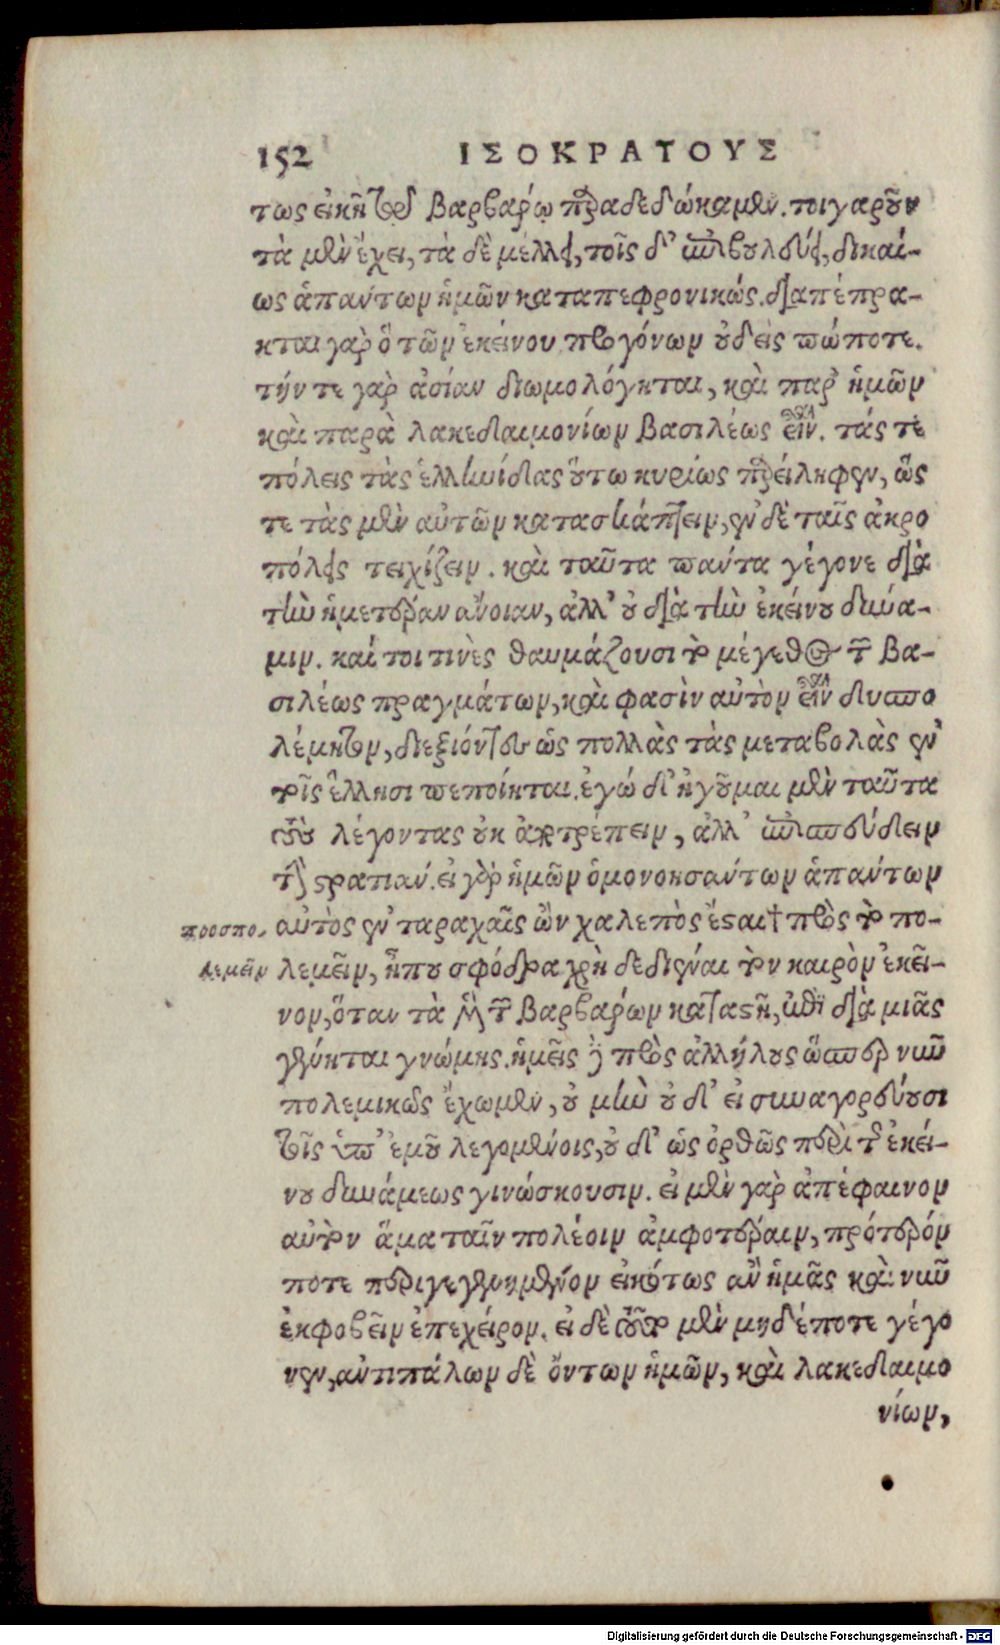 152 ΙΣΟΚΡΑΤΟΥΣ
τως εἰκῆ τῷ βαρβάρῳ παραδεδώκαμεν. τοιγαροῦν
τὰ μὲν ἔχει, τὰ δὲ μέλλει, τοῖς δ' ἐπιβουλεύει, δικαί-
ως ἁπάντων ἡμῶν καταπεφρονικώς. διαπέπρα-
κται γὰρ ὃ τῶν ἐκείνου προγόνων οὐδεὶς πώποτε.
τήν τε γὰρ ἀσίαν διωμολόγηται, καὶ παρ' ἡμῶν
καὶ παρὰ λακεδαιμονίων βασιλέως εἶναι. τάς τε
πόλεις τὰς ἑλληνίδας οὕτω κυρίως παρείληφεν, ὥς
τε τὰς μὲν αὐτῶν κατασκάπτειν, ἐν δὲ ταῖς ἀκρο
πόλεις τειχίζειν. καὶ ταῦτα πάντα γέγονε διὰ
τὴν ἡμετέραν ἄνοιαν, ἀλλ' οὐ διὰ τὴν ἐκείνου δύνα-
μιν. καί τοι τινὲς θαυμάζουσι τὸ μέγεθος τῶν βα-
σιλέως πραγμάτων, καὶ φασὶν αὐτὸν εἶναι δυσπο
λέμητον, διεξιόντες ὡς πολλὰς τὰς μεταβολὰς ἐν
τοῖς ἕλλησι πεποίηται. ἐγώ δ' ἡγοῦμαι μὲν ταῦτα
τοὺς λέγοντας οὐκ ἀποτρέπειν, ἀλλ' ἐπισπεύδειν
τὴν στρατιάν. εἰ γὰρ ἡμῶν ὁμονοησάντων ἁπάντων
αὐτὸς ἐν ταραχαῖς ὢν χαλεπὸς ἔσται † πρὸς τὸ πο-
προσπο-
λεμεῖν
λεμεῖν, ἦπου σφόδρα χρὴ δεδιέναι τὸν καιρὸν ἐκεῖ-
νον, ὅταν τὰ μὲν τῶν βαρβάρων καταστῇ, καὶ διὰ μιᾶς
γένηται γνώμης. ἡμεῖς δὲ πρὸς ἀλλήλους ὥσπερ νῦν
πολεμικῶς ἔχωμεν, οὐ μὴν οὐδ' εἰ συναγορεύουσι
τοῖς ὑπ' ἐμοῦ λεγομένοις, οὐδ' ὡς ὀρθῶς περὶ τῆς ἐκεί-
νου δυνάμεως γινώσκουσιν. εἰ μὲν γὰρ ἀπέφαινον
αὐτὸν ἅμα ταῖν πολέοιν ἀμφοτέραιν, πρότερόν
ποτε περιγεγενημένον εἰκότως ἂν ἡμᾶς καὶ νῦν
ἐκφοβεῖν ἐπεχείρον. εἰ δὲ τοῦτο μὲν μηδέποτε γέγο
νεν, ἀντιπάλων δὲ ὄντων ἡμῶν, καὶ λακεδαιμο
νίων,
Digitalisierung gefördert durch die Deutsche Forschungsgemeinschaft - DFG